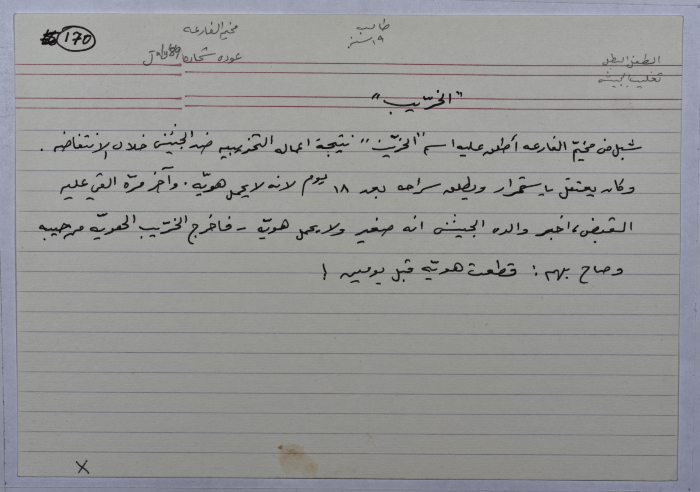 170
مخيم الفارعه
عوده شحاده
طالب
١٩ سنه
الطفل البطل
تغليب الجيش
"الخرّيب"
شبل من مخيّم الفارعه أطلق عليه اسم "الخرّيب" نتيجة اعماله التخريبيه ضد الجيش خلال الانتفاضه .
وكان يعتقل باستمرار ويطلق سراحه بعد ١٨ يوم لانه لا يحمل هويّه . وآخر مرّة القي عليه
القبض، أخبر والده الجيش انه صغير ولا يحمل هويّه - فاخرج الخرّيب الهويّه من جيبه
وصاح بهم : قطعت هويّه قبل يومين !
X